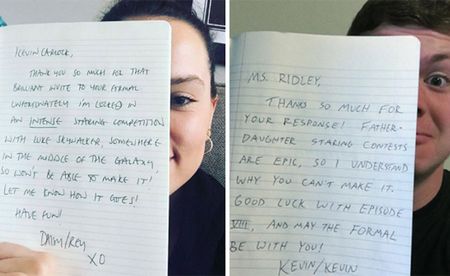 KEVIN CARLOCK,
THANK YOU SO MUCH FOR THAT
BRILLIANT INVITE TO YOUR FORMAL
UNFORTUNATELY I'M LOCKED IN
AN INTENSE STARING COMPETITION
WITH LUKE SKYWALKER, SOMEWHERE
IN THE MIDDLE OF THE GALAXY,
SO WON'T BE ABLE TO MAKE IT!
LET ME KNOW HOW IT GOES!
HAVE FUN!
DAISY/REY
XO
MS. RIDLEY,
THANKS SO MUCH FOR
YOUR RESPONSE! FATHER-
DAUGHTER STARING CONTESTS
ARE EPIC, SO I UNDERSTAND
WHY YOU CAN'T MAKE IT.
GOOD LUCK WITH EPISODE
VIII, AND MAY THE FORMAL
BE WITH YOU!
KEVIN/KEVIN